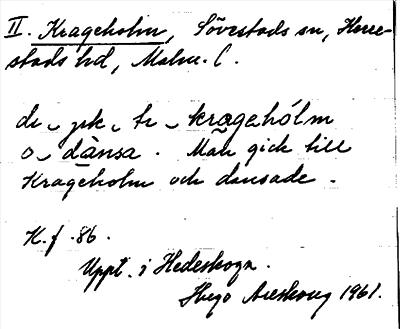 II. Krageholm, Sövestads sn, Herre-
stads hd, Malm. l.
krageholm
o dànsa. Man gick till
Krageholm och dansade.
K. f. 86.
Uppt. i Hedeskoga.
Hugo Areskoug 1961.